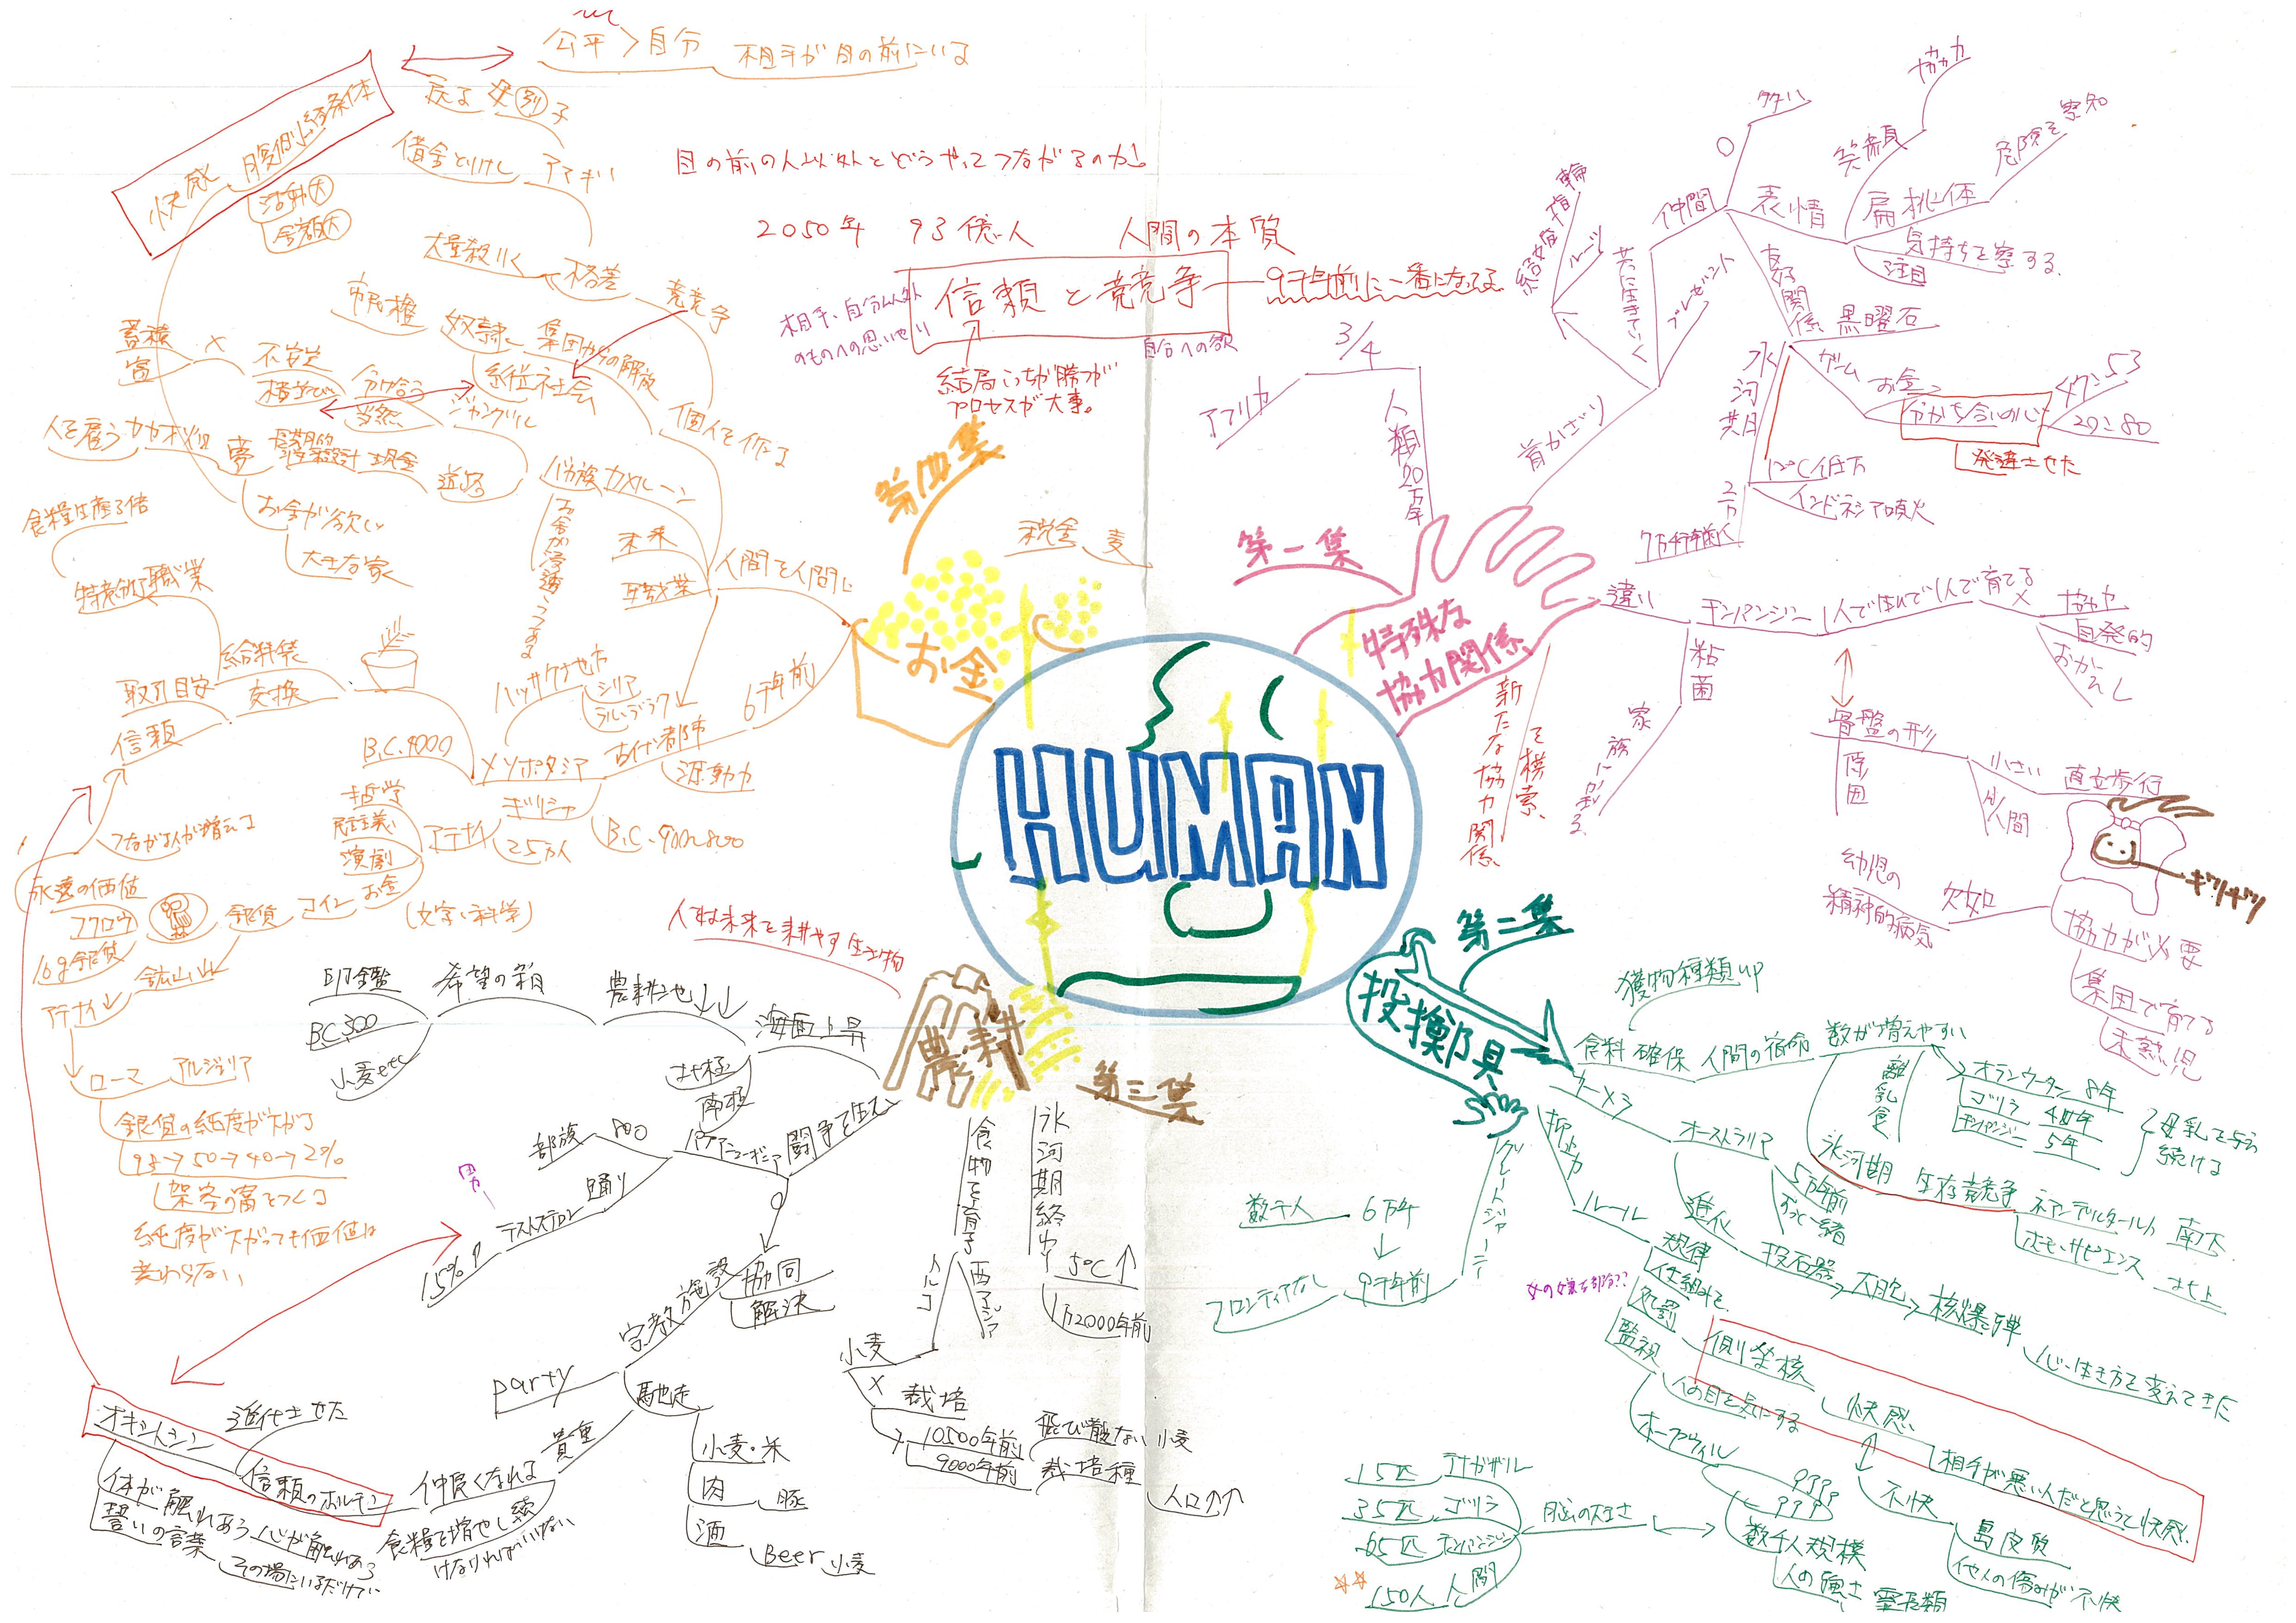 公平 > 自分
相手が目の前にいる
戻る
快感
腹側線条体
活動大
金額大
借金とりけし
アマギ
目の前の人以外とどうやってつながるのか
2050年 93億人 人間の本質
信頼と競争
9千年前に一番になってる
相手、自分以外
のものへの思いやり
自分への欲
結局こっちが勝つが
プロセスが大事。
大量殺りく
格差
競争
市民権
奴隷
集団からの解放
個人を作る
蓄積
富
×
不安定
横並び
分け合う
当然
ジャングル
人を雇う
カカオ畑
夢
長期的
現金
道路
バカ族
カメルーン
お金が浸透しつつある
お金が欲しい
大きな家
食料生産3倍
特意な職業
未来
職業
人間を人間に
税金
麦
第四集
お金
給料袋
取引目安
交換
信頼
ハッサケ地方
シリア
6千年前
古代都市
源動力
メソポタミア
B.C.4000
ギリシャ
アテナイ
25万人
B.C.900~800
哲学
民主主義
演劇
お金
コイン
銀貨
(文字、科学)
つながる人が増える
永遠の価値
フクロウ
16g銀貨
鉱山
アテナイ
ローマ
アルジェリア
銀値の純度が下がる
98→50→40→2%
架空の富をつくる
純度が下がっても価値は
変わらない
第一集
特殊な
協力関係
人類20万年
3/4
アフリカ
首かざり
プレゼント
共に生きていく
ルーツ
結婚指輪
仲間
表情
笑顔
協力
扁桃体
危険を察知
気持ちを察する
注目
友好関係
黒曜石
氷河期
ゲーム
お金
分かち合いの心
47:53
20:80
発達させた
12℃低下
インドネシア噴火
7万4千年前
2万
違い
チンパンジー
1人で生んで1人で育てる
×
協力
自発的
おかえし
粘菌
家族にかぎる
新たな協力関係
を模索、
骨盤の形
原因
小さい
人間
直立歩行
ギリギリ
協力が必要
欠如
幼児の
精神的病気
集団で育てる
未熟児
HUMAN
第二集
投擲具
獲物種類up
食料確保
人間の宿命
数が増えやすい
離乳食
オランウータン 8年
ゴリラ 4年
チンパンジー 5年
母乳を与え
続ける
氷河期
生存競争
ネアンデルタール人 南下
ホモ・サピエンス 北上
ウーメラ
オーストラリア
5万年前
ずっと一緒
進化
投石器
大砲
核爆弾
心・生き方を変えてきた
抑止力
ルール
規律
仕組みを
処罰
監視
側坐核
快感
人の目を気にする
相手が悪い人だと思うと快感
不快
島皮質
他人の傷みが不快
ホープウェル
数千人規模
霊長類
脳の大きさ
15匹 テナガザル
35匹 ゴリラ
65匹 チンパンジー
150人 人間
グレートジャーニー
数千人
6万年
9千年前
フロンティアなし
人は未来を耕やす生き物
第三集
農耕
海面上昇
農耕地
北極
南極
希望の羽
印鑑
BC300
小麦etc
闘争を生む
パプアニューギニア
800
部族
踊り
テストステロン
15%
男力
協同
解決
宗教施設
party
馳走
小麦・米
肉
豚
酒
Beer 小麦
貴重
仲良くなれる
食料を増やし続
けなければいけない
オキシトシン
進化させた
信頼のホルモン
体が触れあう 心が触れある
誓いの言葉
その場にいるだけで
食物を育る
西アジア
トルコ
小麦
×
栽培
10500年前
9000年前
飛び散ない小麦
栽培種
人口↑↑
氷河期終わり
5℃↑
1万2000年前